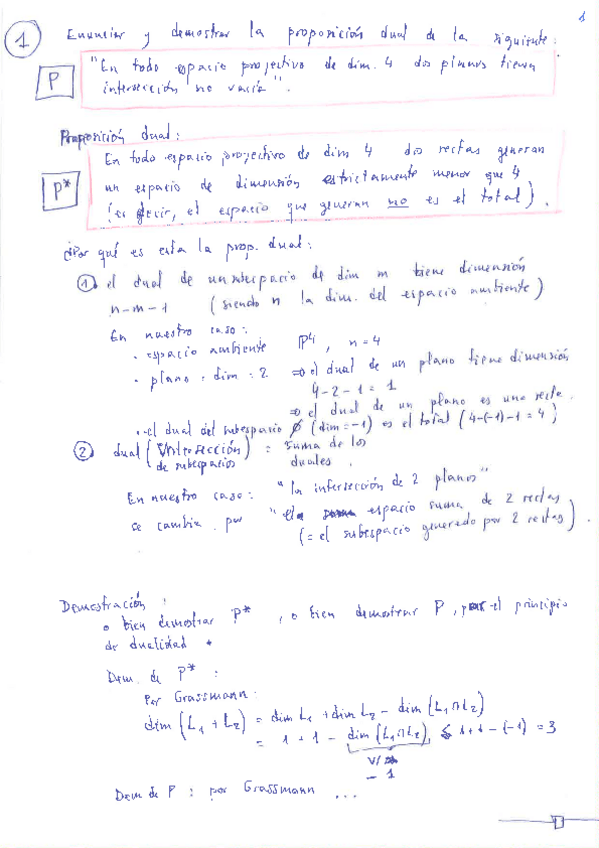 1
① Enunciar y demostrar la proposición dual de la siguiente:
P "En todo espacio proyectivo de dim. 4 dos planos tienen
intersección no vacía".
Proposición dual:
En todo espacio proyectivo de dim 4 dos rectas generan
P* un espacio de dimensión estrictamente menor que 4
(es decir, el espacio que generan no es el total).
¿Por qué es esta la prop. dual:
① el dual de un subespacio de dim m tiene dimensión
n-m-1 (siendo n la dim. del espacio ambiente)
En nuestro caso:
· espacio ambiente P⁴, n=4
· plano · dim = 2 ⇒ el dual de un plano tiene dimensión
4-2-1 = 1
⇒ el dual de un plano es una recta.
· el dual del subespacio ∅ (dim=-1) es el total (4-(-1)-1=4);
② dual (intersección) = suma de los
de subespacios duales.
En nuestro caso: "la intersección de 2 planos"
se cambia por "el espacio suma de 2 rectas
(= el subespacio generado por 2 rectas).
Demostración:
o bien demostrar P*, o bien demostrar P, por el principio
de dualidad.
Dem. de P*:
Por Grassmann:
dim (L₁ + L₂) = dim L₁ + dim L₂ - dim (L₁∩L₂)
= 1 + 1 - dim (L₁∩L₂) ≤ 1+1-(-1) = 3
V/
-1
Dem de P: por Grassmann ...